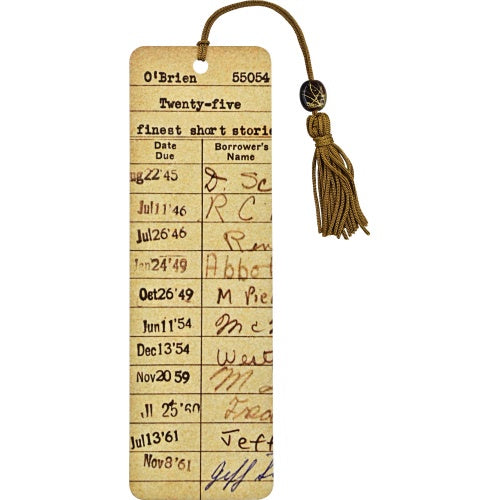 O'Brien 55054
Twenty-five
finest short storie
Date Due Borrower's Name
ug 22'45 D. Sc
Jul 11'46 R C
Jul 26'46 Ren
Jan 24'49 Abbo
Oct 26'49 M Pie
Jun 11'54 Mc
Dec 13'54 West
Nov 20 59 M
Jl 25'60
Jul 13'61 Jeff
Nov 8'61 Jeff S